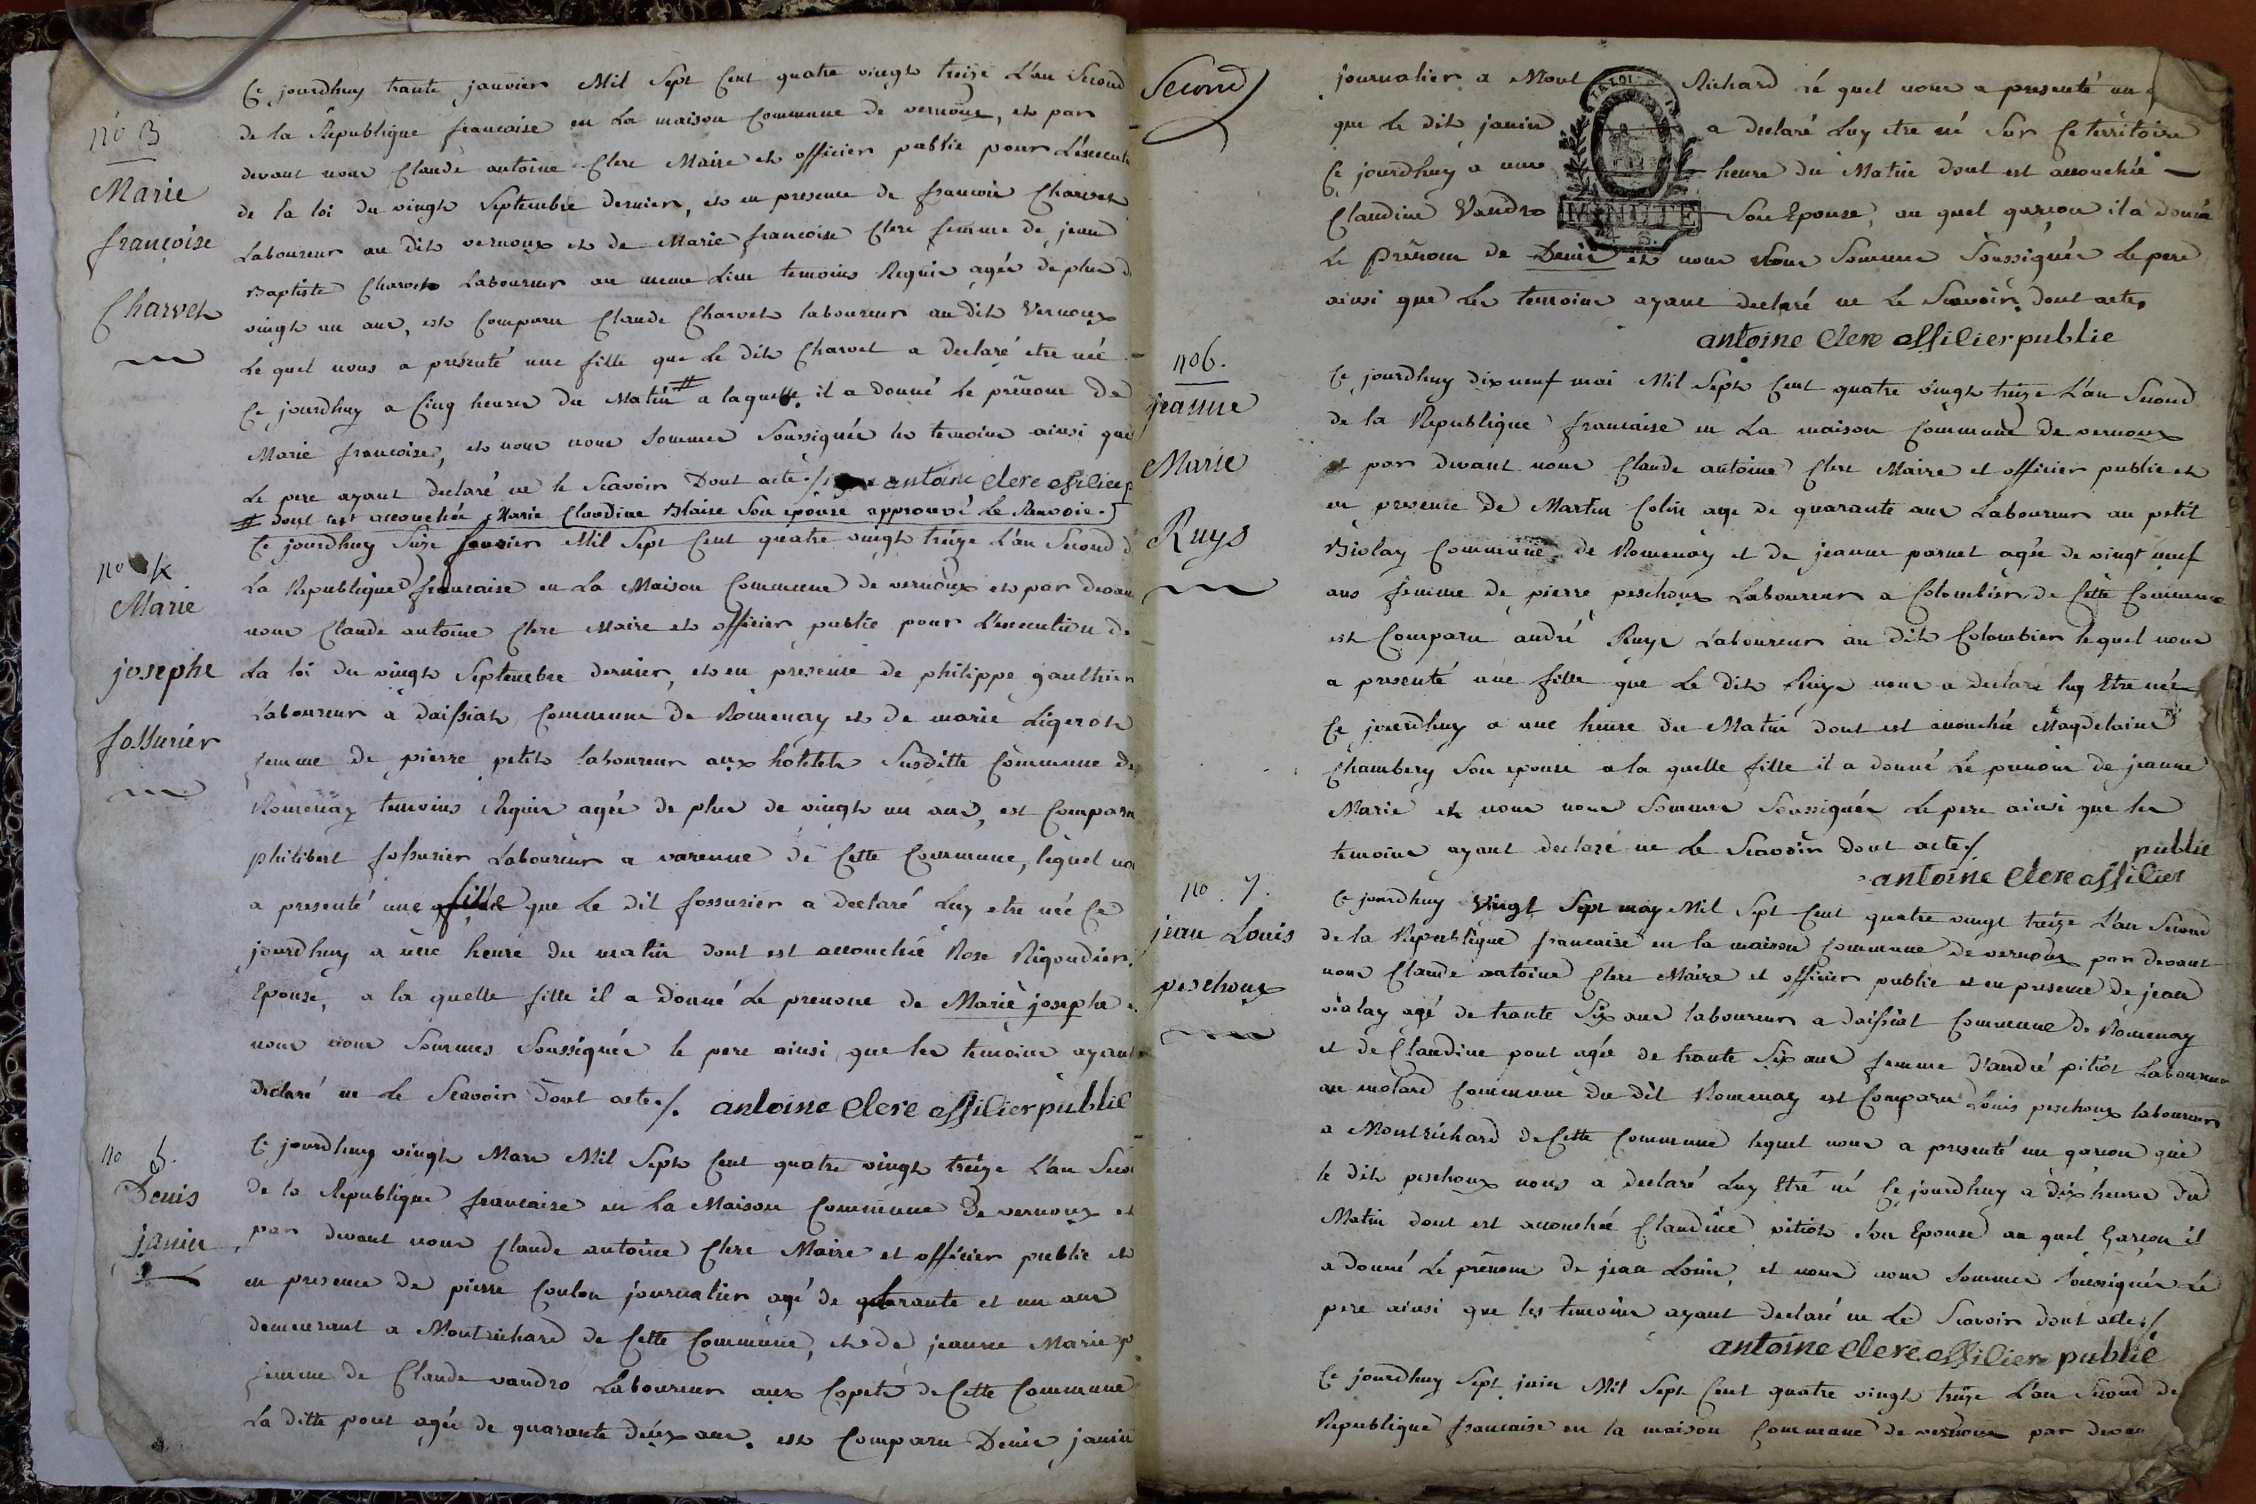 no 3
Marie
françoise
Charvet
Ce jourdhuy trante janvier Mil Sept Cent quatre vingt treize L'an Second
de la Republique francaise en La maison Commune de vernoux, et par
devant nous Claude antoine Clere Maire et officier public pour L'execut
de la loi du vingt Septembre dernier, et en presence de francois Charvet
Laboureur au dit vernoux et de Marie francoise Clere femme de jean
Baptiste Charvet Laboureur au meme Lieu temoins Requis agés de plus d
vingt un ans, est Comparu Claude Charvet laboureur au dit Vernoux
Le quel nous a presenté une fille que Le dit Charvet a declaré etre née
Ce jourdhuy a Cinq heures du Matin # a laquelle il a donné Le prénom De
Marie francoise, et nous nous sommes Soussignés les temoins ainsi que
Le pere ayant declaré ne le Scavoir Dont acte ./. antoine clere offilier p
# dont est accouchée Marie Claudine Blaise Son epouse approuvé Le Renvoie .
no 4
Marie
josephe
fossurier
Ce jourdhuy Seize fevrier Mil Sept Cent quatre vingt treize L'an Second d
La Republique francaise en La Maison Commune de vernoux et par devan
nous Claude antoine Clere Maire et officier public pour L'execution de
La loi du vingt Septembre dernier, et en presence de philippe gaulthier
Laboureur a daissiat Commune de Romenay et de marie Ligerot
femme de pierre petit laboureur aux hotelets Susditte Commune de
Romenay temoins Requis agés de plus de vingt un ans, est Comparu
philibert fossurier Laboureur a varenne de Cette Commune, lequel nou
a presenté une fille que Le dit fossurier a declaré Luy etre née Ce
jourdhuy a une heure du matin dont est accouchée Rose Rigoudier
Epouse, a la quelle fille il a Donné Le prenom de Marie josephe e
nous nous Sommes Soussignés le pere ainsi que les temoins ayant
declaré ne Le Scavoir dont acte ./. antoine Clere offilier publie
no 5.
Denis
janin
Ce jourdhuy vingt Mars Mil Sept Cent quatre vingt treize L'an Seco
de la Republique francaise en la Maison Commune De vernoux et
par devant nous Claude antoine Clere Maire et officier public et
en presence de pierre Coulon journalier agé de quarante et un ans
demeurant a Montrichard de Cette Commune, et de jeanne Marie p
femme de Claude vandro Laboureur aux Copets de Cette Commune
La ditte pont agée de quarante deux ans. est Comparu Denis janin
Second
journalier a Mont Richard le quel nous a presenté un g
que Le dit janin a declaré Luy etre né Sur Ce territoire
Ce jourdhuy a une heure du Matin dont est accouchée
Claudine Vandro Son Epouse, au quel garcon il a donné
Le Prénom de Denis et nous Nous Sommes Soussignés Le pere
ainsi que les temoins ayant declaré ne Le Scavoir dont acte
LA LOI
MINUTE
4 S.
antoine Clere offilier publie
no 6.
jeanne
Marie
Ruys
Ce jourdhuy dix neuf mai Mil Sept Cent quatre vingt treize L'an Second
de la Republique francaise en La maison Commune de vernoux
et par devant nous Claude antoine Clere Maire et officier public et
en presence de Martin Colin age de quarante ans Laboureur au petit
Biolay Commune de Romenay et de jeanne parnet agée de vingt neuf
ans femme de pierre peschoux Laboureur a Colombier de Cette Commune
est Comparu andré Ruys Laboureur au dit Colombier lequel nous
a presenté une fille que Le dit Ruys nous a declaré luy Etre née
Ce jourdhuy a une heure du Matin dont est accouchée Magdelaine
Chambery Son epouse a la quelle fille il a donné Le prenom de jeanne
Marie et nous nous Sommes Soussignés Le pere ainsi que les
temoins ayant declaré ne Le Scavoir dont acte ./.
publie
antoine Clere offilier
no 7.
jean Louis
peschoux
Ce jourdhuy vingt Sept may Mil Sept Cent quatre vingt treize L'an Second
de la Republique francaise en la maison Commune de vernoux par devant
nous Claude antoine Clere Maire et officier public et en presence de jean
violay agé de trante Six ans laboureur a daissiat Commune de Romenay
et de Claudine pont agée de trante Six ans femme d'andré pitiot Laboureur
au molard Commune du dit Romenay est Comparu Louis peschoux laboureur
a Montrichard de Cette Commune lequel nous a presenté un garcon que
le dit peschoux nous a declaré Luy Etre né Ce jourdhuy a dix heures du
Matin dont est accouchée Claudine pitiot Son Epouse au quel Garcon il
a donné Le prénom de jean Louis, et nous nous Sommes Soussignés Le
pere ainsi que les temoins ayant declaré ne Le Scavoir dont acte ./.
antoine Clere offilier publie
Ce jourdhuy Sept juin Mil Sept Cent quatre vingt treize L'an Second de
Republique francaise en la maison Commune de vernoux par devan